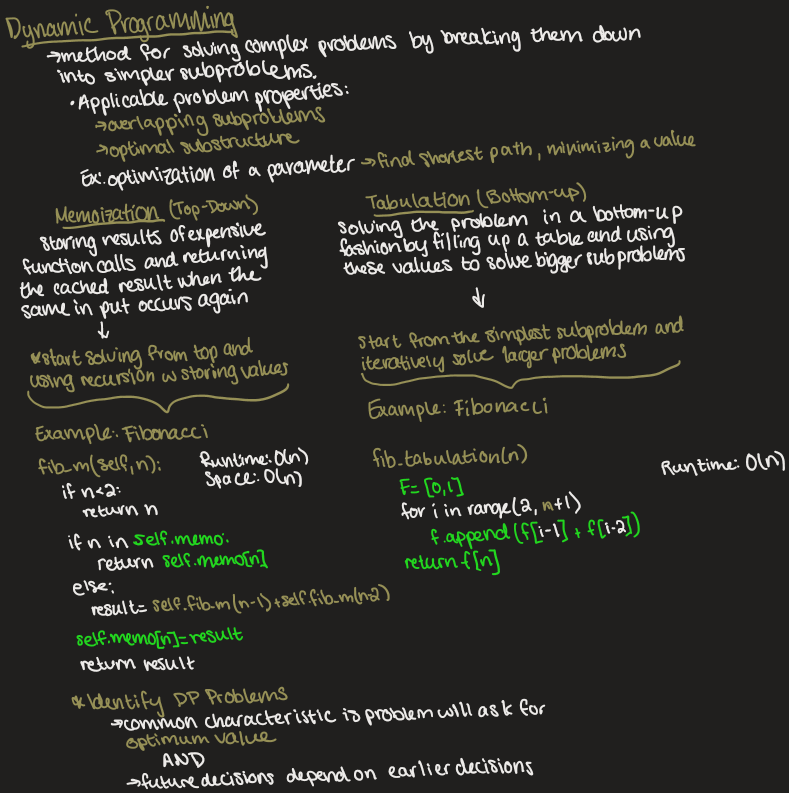 Dynamic Programming
→method for solving complex problems by breaking them down
into simpler subproblems.
•Applicable problem properties:
→overlapping subproblems
→optimal substructure
Ex: optimization of a parameter →find shortest path, minimizing a value
Memoization (Top-Down)
storing results of expensive
function calls and returning
the cached result when the
same in put occurs again
↓
*start solving from top and
using recursion w storing values
Example: Fibonacci
fib_m(self,n):
Runtime: O(n)
Space: O(n)
if n<2:
return n
if n in self.memo:
return self.memo[n]
else:
result= self.fib_m(n-1)+self.fib_m(n-2)
self.memo[n]=result
return result
Tabulation (Bottom-up)
solving the problem in a bottom-up
fashion by filling up a table and using
these values to solve bigger subproblems
↓
start from the simplest subproblem and
iteratively solve larger problems
Example: Fibonacci
fib_tabulation(n)
Runtime: O(n)
F= [0,1]
for i in range(2, n+1)
f.append(f[i-1] + f[i-2])
return f[n]
*Identify DP Problems
→common characteristic is problem will ask for
optimum value
AND
→future decisions depend on earlier decisions